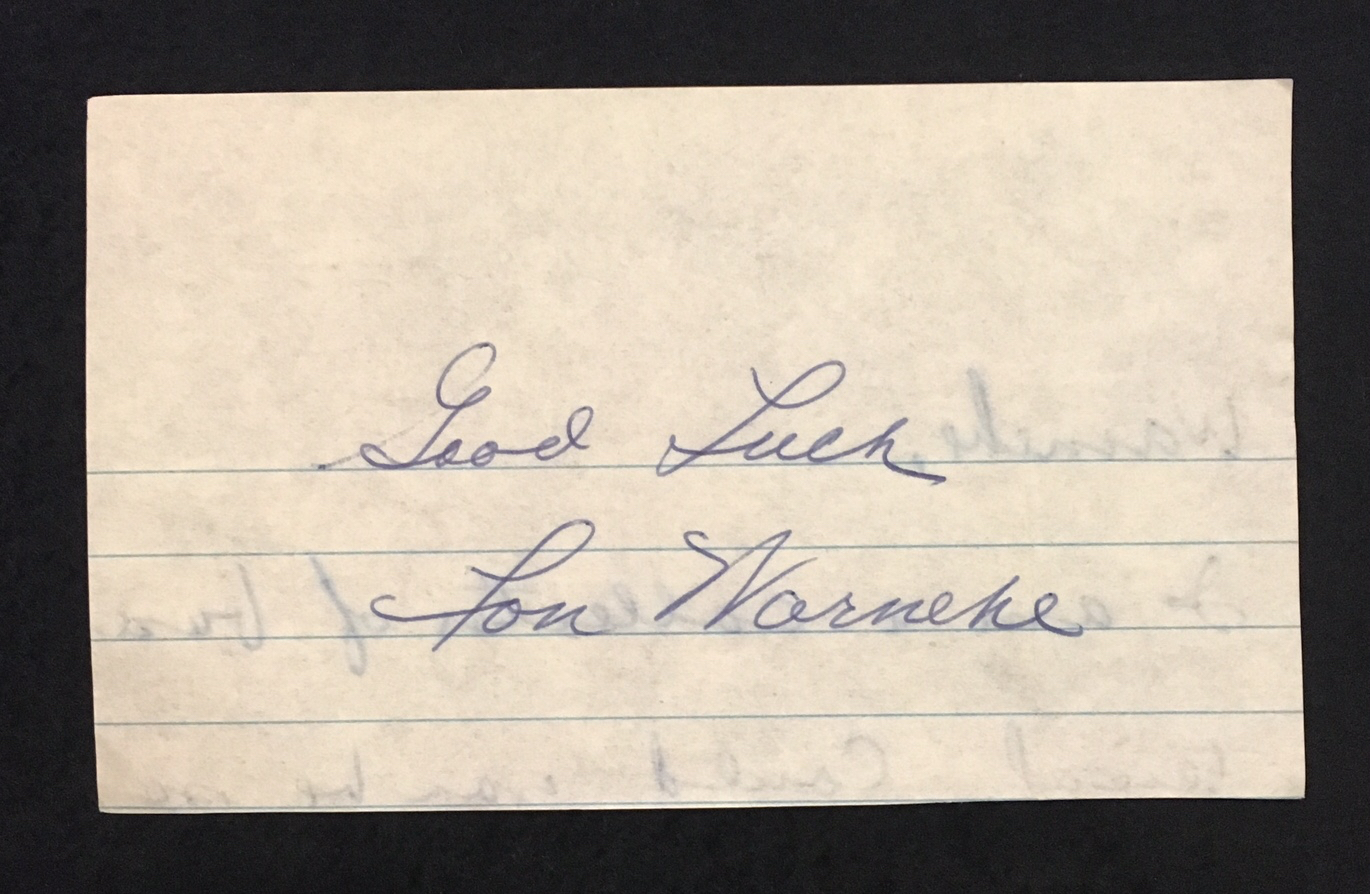 Good Luck
Lon Warneke